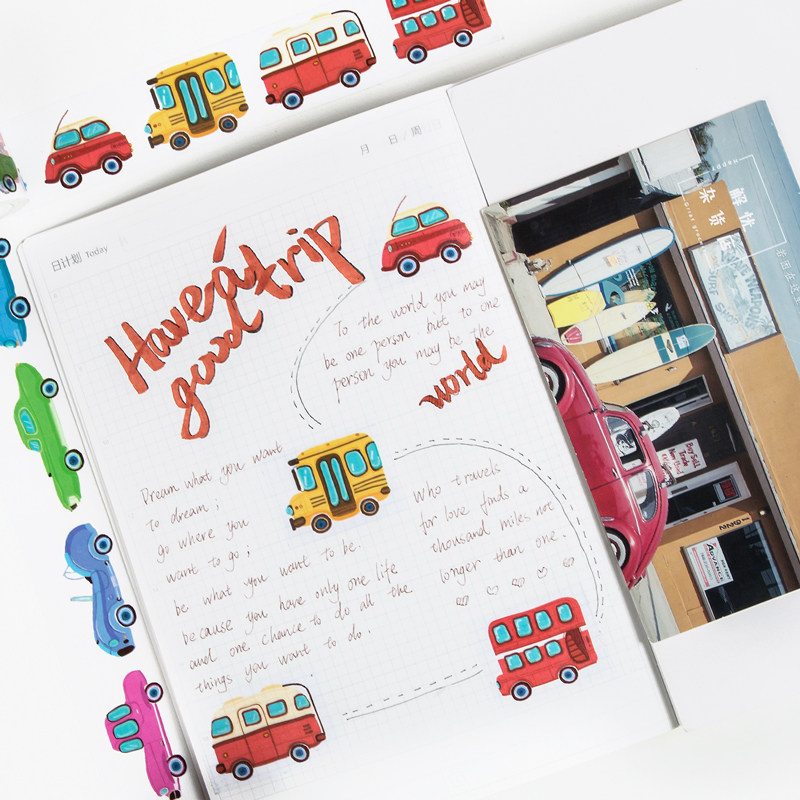 月 日 周
日计划 Today
Have a
good trip
To the world you may
be one person but to one
person you may be the
world
Dream what you want
to dream ;
go where you
want to go ;
be what you want to be.
because you have only one life
and one chance to do all the
things you want to do.
Who travels
for love finds a
thousand miles not
longer than one.
解忧
杂货店
SURF SHOP
Buy Sell
Trade
1922
ADVANCE